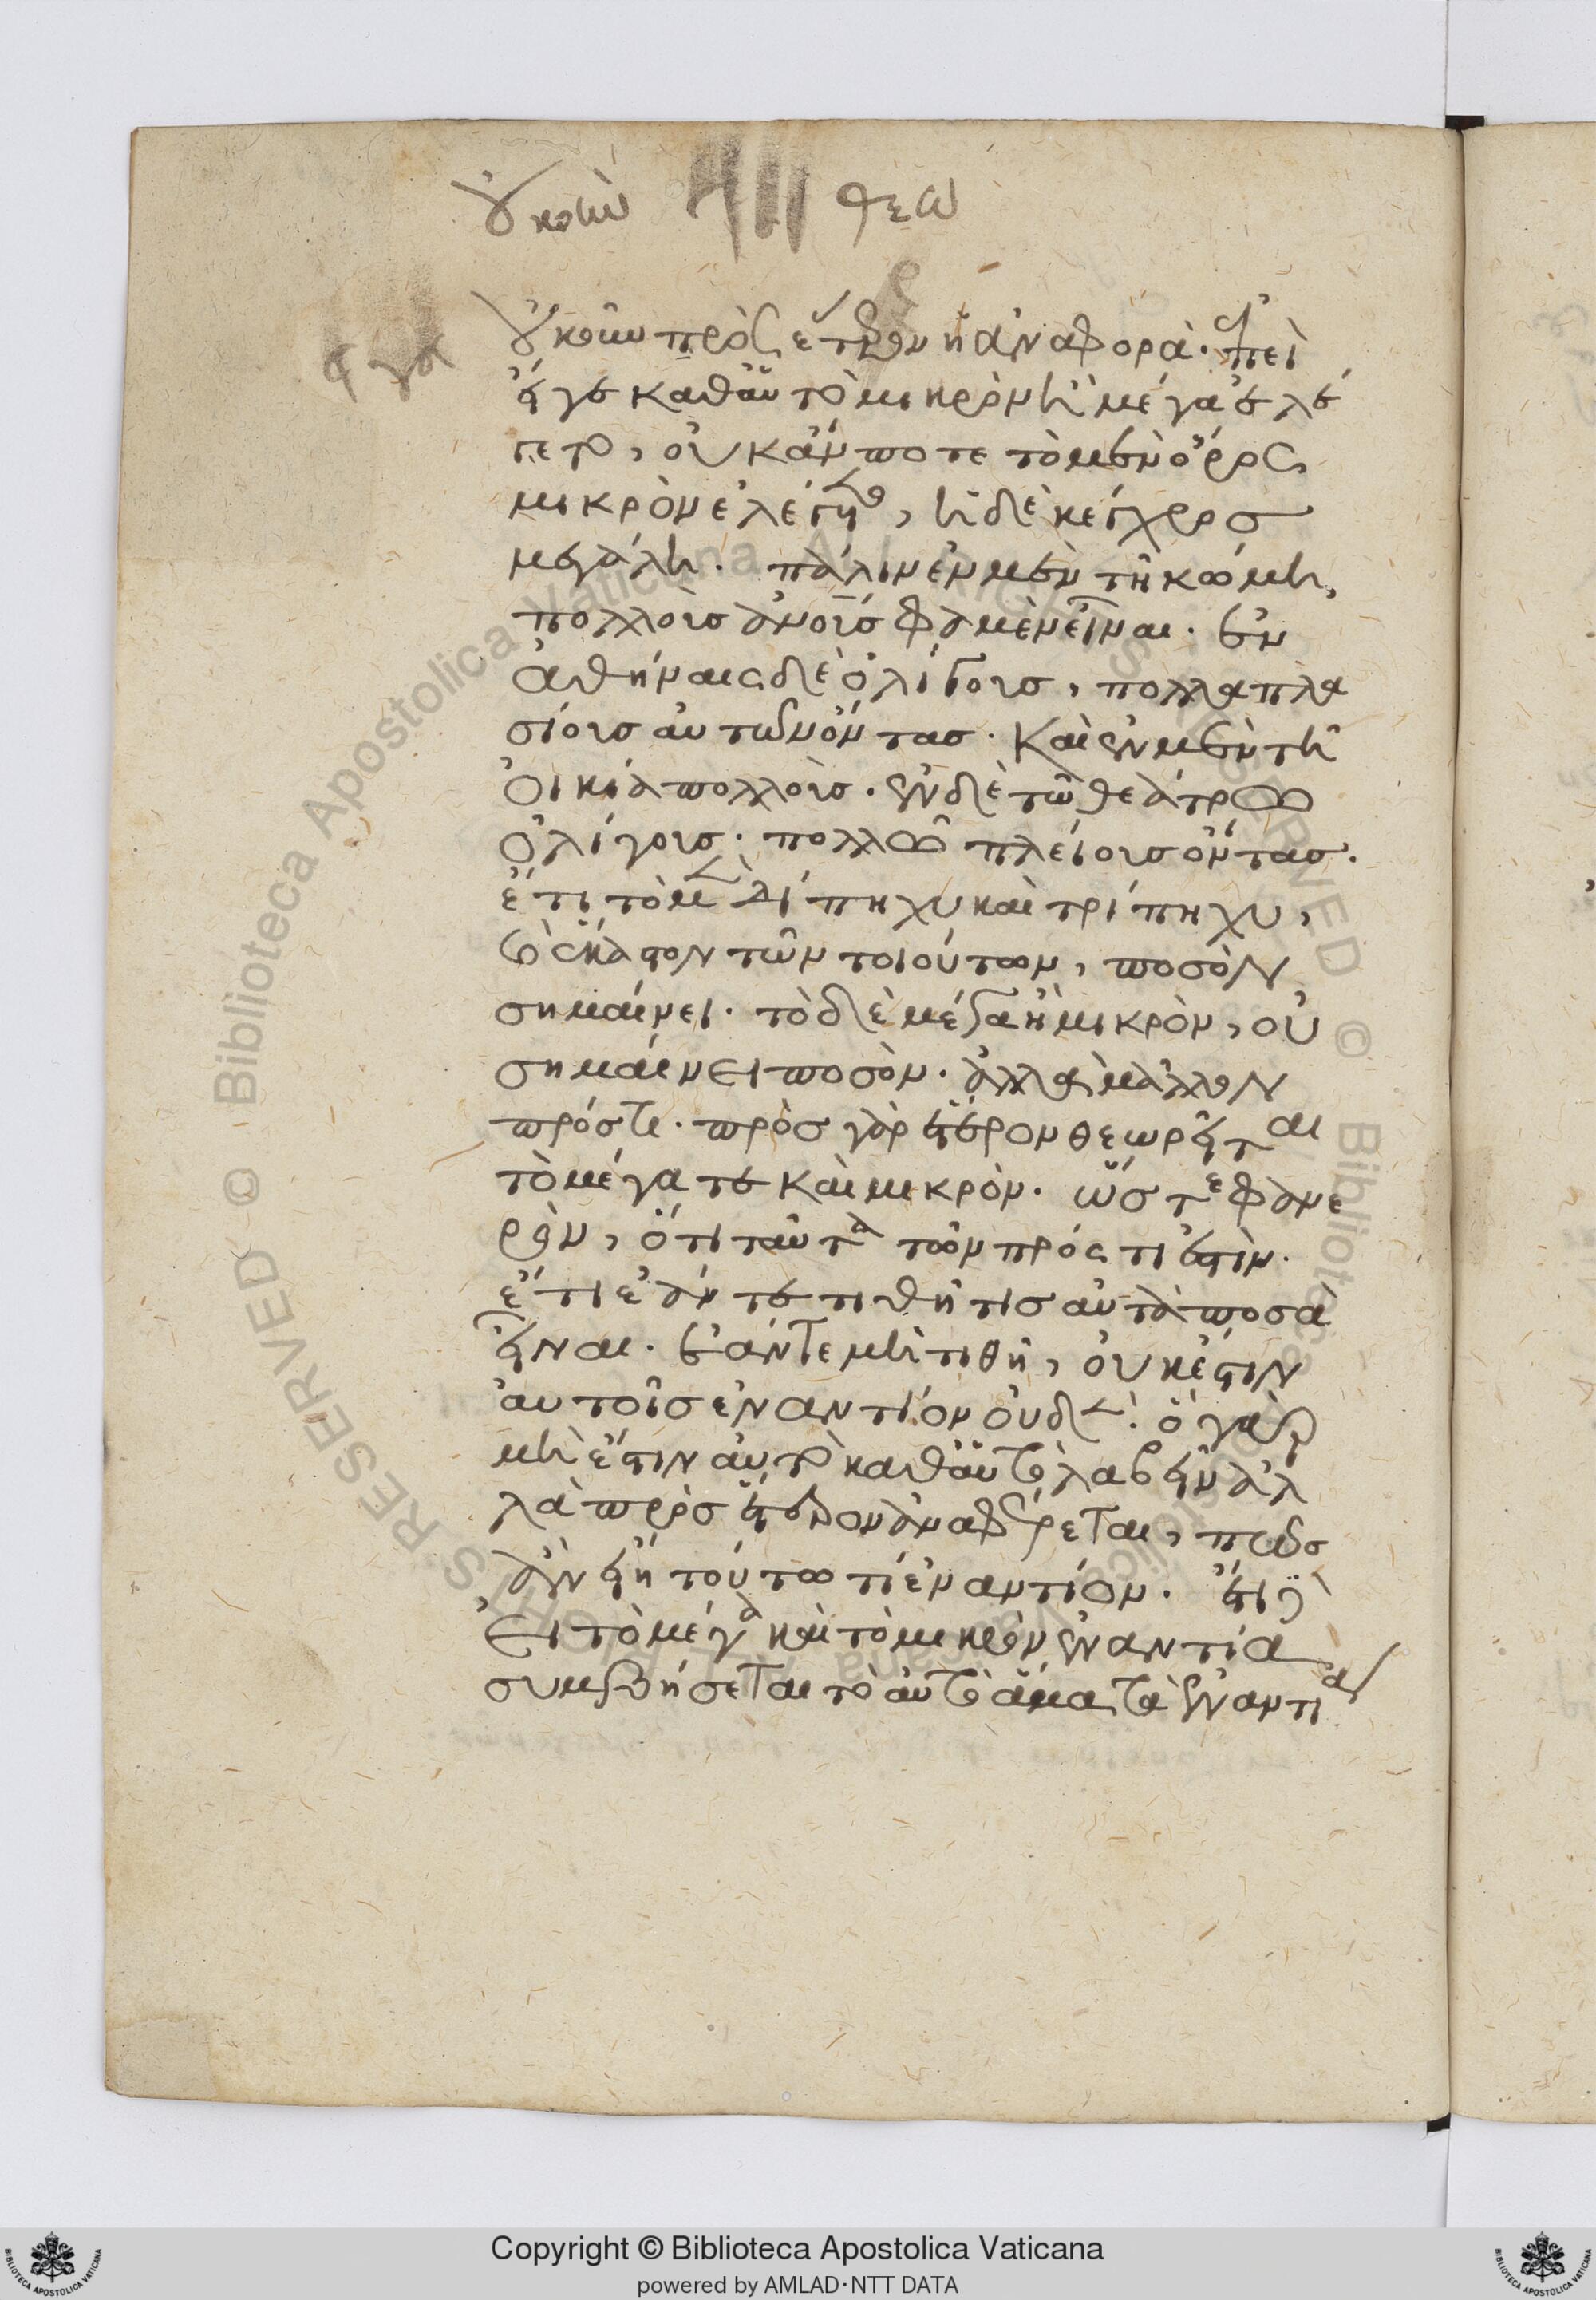 οὐκοῦν
οὐκοῦν πρὸς ἕτερον ἡ ἀναφορά. ἐπεὶ
εἴγε καθ' αὑτὸ μικρὸν ἢ μέγα ἐλέ
γετο, οὐκ ἄν ποτε τὸ μὲν ὄρος
μικρὸν ἐλέγετο, ἡ δὲ κέγχρος
μεγάλη. πάλιν ἐν μὲν τῇ κώμῃ
πολλοὺς ἀνους φαμὲν εἶναι. ἐν
ἀθήναις δὲ ὀλίγους, πολλαπλα
σίους αὐτῶν ὄντας. καὶ ἐν μὲν τῇ
οἰκίᾳ πολλοὺς. ἐν δὲ τῶ θεάτρω
ὀλίγους. πολλῶ πλείους ὄντας.
ἔτι τὸ μὲν δίπηχυ καὶ τρίπηχυ,
καὶ ἕκαστον τῶν τοιούτων, ποσὸν
σημαίνει. τὸ δὲ μέγα ἢ μικρὸν, οὐ
σημαίνει ποσὸν. ἀλλὰ μᾶλλον
πρός τι. πρὸς γὰρ ἕτερον θεωρεῖται
τὸ μέγα τε καὶ μικρὸν. ὥστε φανε
ρὸν, ὅτι ταῦτα τῶν πρός τι ἐστὶν.
ἔτι ἐάν τε τιθῆ τις αὐτὰ ποσὰ
εἶναι. ἐάν τε μὴ τιθῆ, οὐκ ἔστιν
αὐτοῖς ἐναντίον οὐδέν. ὃ γὰρ
μὴ ἔστιν αὐτὸ καθ' αὑτὸ λαβεῖν ἀλ
λὰ πρὸς ἕτερον ἀναφέρεται, πῶς
ἂν εἴη τούτω τί ἐναντίον. ἔτι δὲ
εἰ τὸ μέγα καὶ τὸ μικρὸν ἐναντία
συμβήσεται τὸ αὐτὸ ἅμα τὰ ἐναντία
Copyright © Biblioteca Apostolica Vaticana
powered by AMLAD·NTT DATA